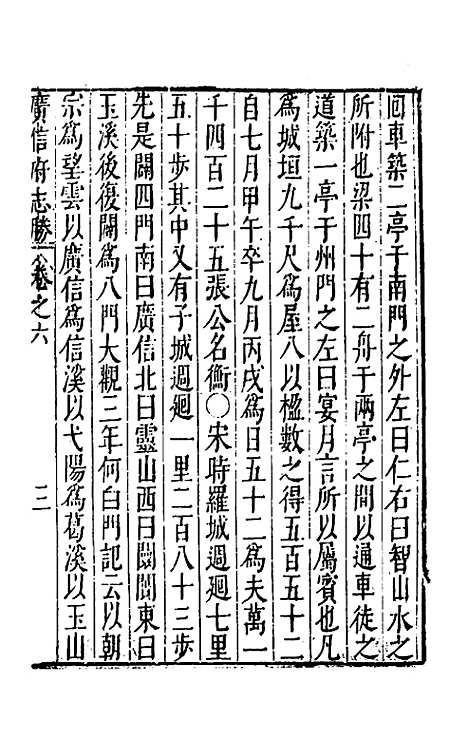 回車築二亭于南門之外左曰仁右曰智山水之
所附也梁四十有二舟于兩亭之間以通車徒之
道築一亭于州門之左曰宴月言所以屬賓也凡
為城垣九千尺為屋八以楹數之得五百五十二
自七月甲午卒九月丙戌為日五十二為夫萬一
千四百二十五張公名衡○宋時羅城週廻七里
五十步其中又有子城週廻一里二百八十三步
先是闢四門南曰廣信北曰靈山西曰閶闔東曰
玉溪後復闢為八門大觀三年何白門記云以朝
宗為望雲以廣信為信溪以弋陽為葛溪以玉山
廣信府志勝 卷之六 三